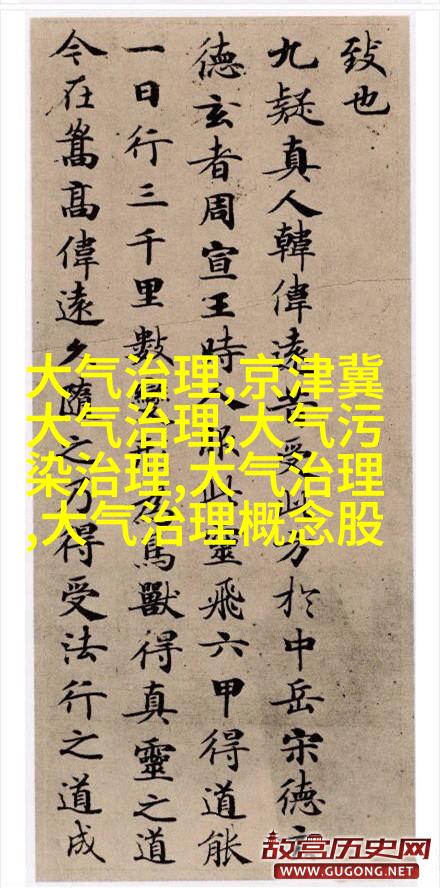 致也
九疑真人韓偉遠昔受此方於中岳宋德
德玄者周宣王時人服此靈飛六甲得道能
一日行三千里數鳥獸得真靈之道
今在嵩高偉遠久隨之乃得受法行之道成
大气治理,京津冀
大气治理,大气污
染治理,大气治理
,大气治理概念股
故宫历史网
WWW.GUGONG.NET